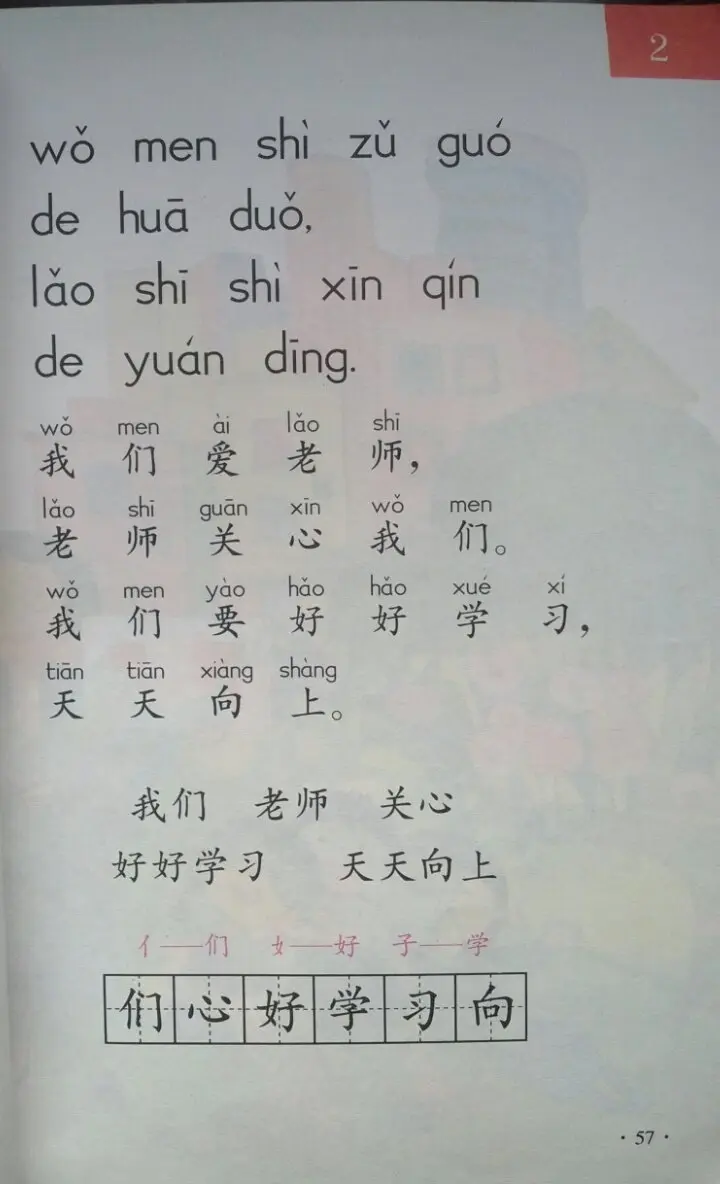 2
wǒ men shì zǔ guó
de huā duǒ,
lǎo shī shì xīn qín
de yuán dīng.
wǒ men ài lǎo shī
我们爱老师，
lǎo shī guān xīn wǒ men
老师关心我们。
wǒ men yào hǎo hǎo xué xí
我们要好好学习，
tiān tiān xiàng shàng
天天向上。
我们 老师 关心
好好学习 天天向上
亻——们 女——好 子——学
们心好学习向
·57·